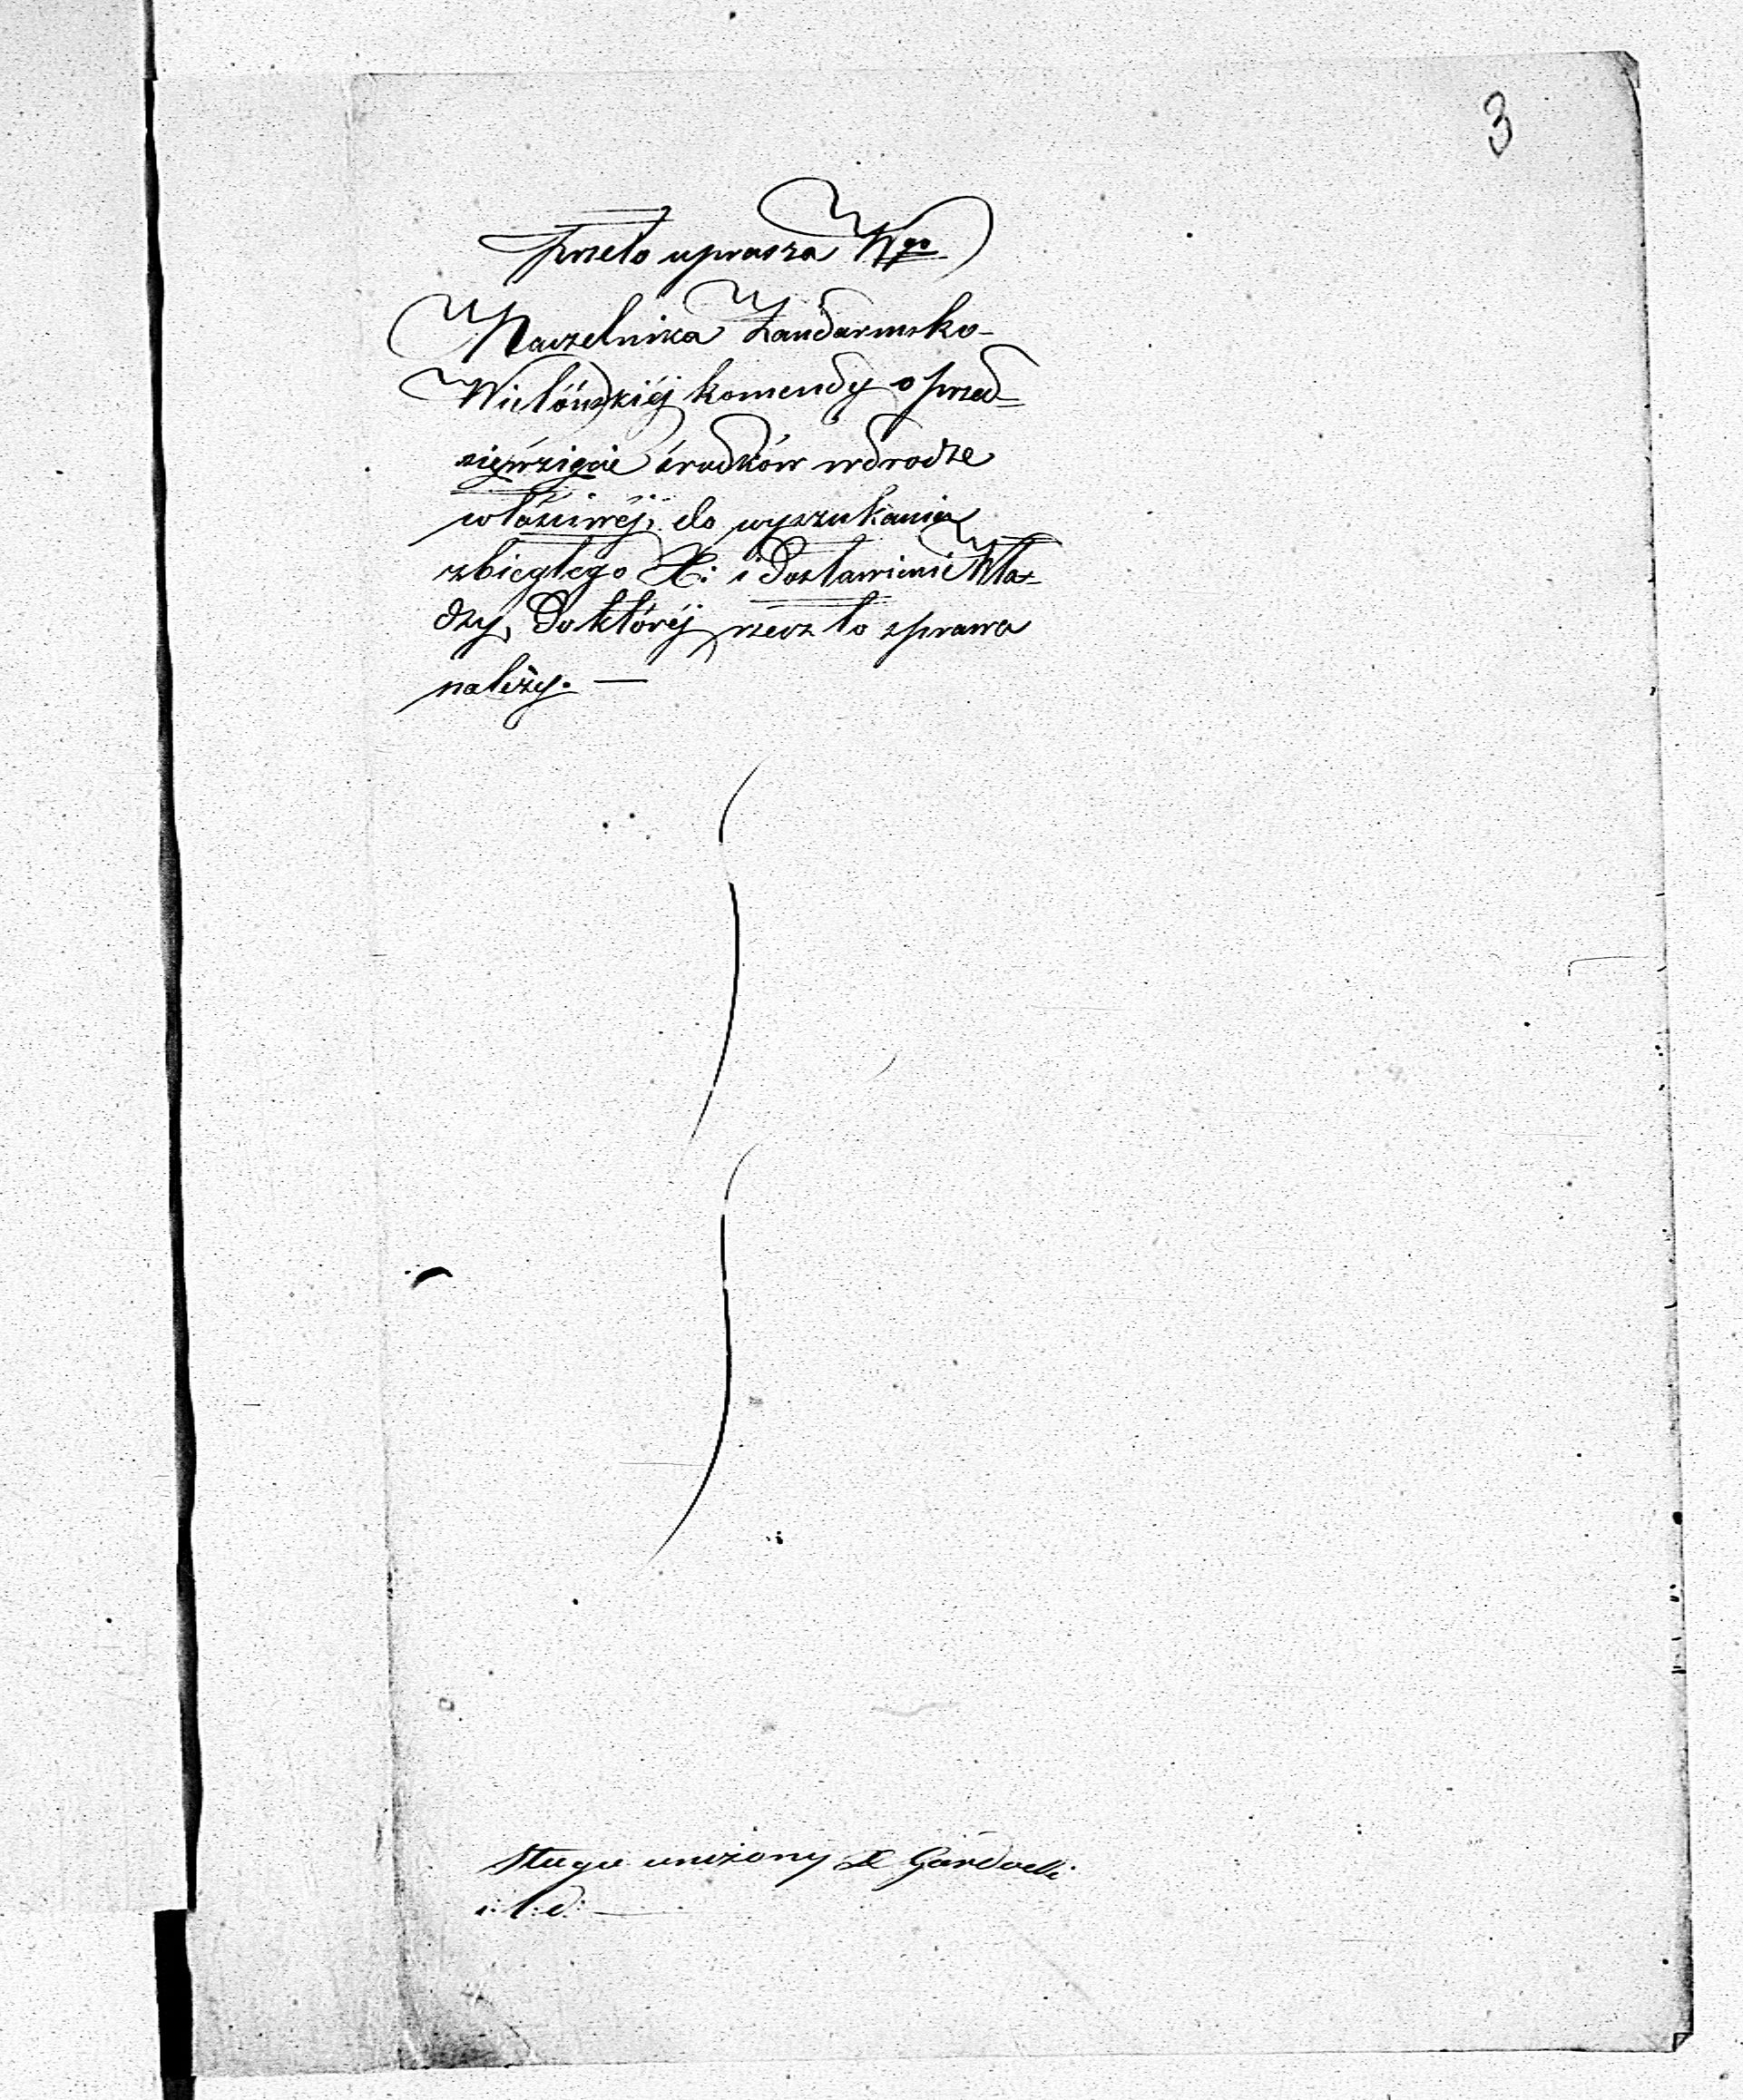 3
Przeto uprasza Wgo
Naczelnika Żandarmsko-
Wieluńskiéj komendy o przed=
sięwzięcie środków wdrodze
właściwéj, do wyszukania
zbiegłego X: i Dostawienie Wła=
dzy, Do któréj rzecz to sprawa
należy. —
Sługa uniżony
i: t: d: —